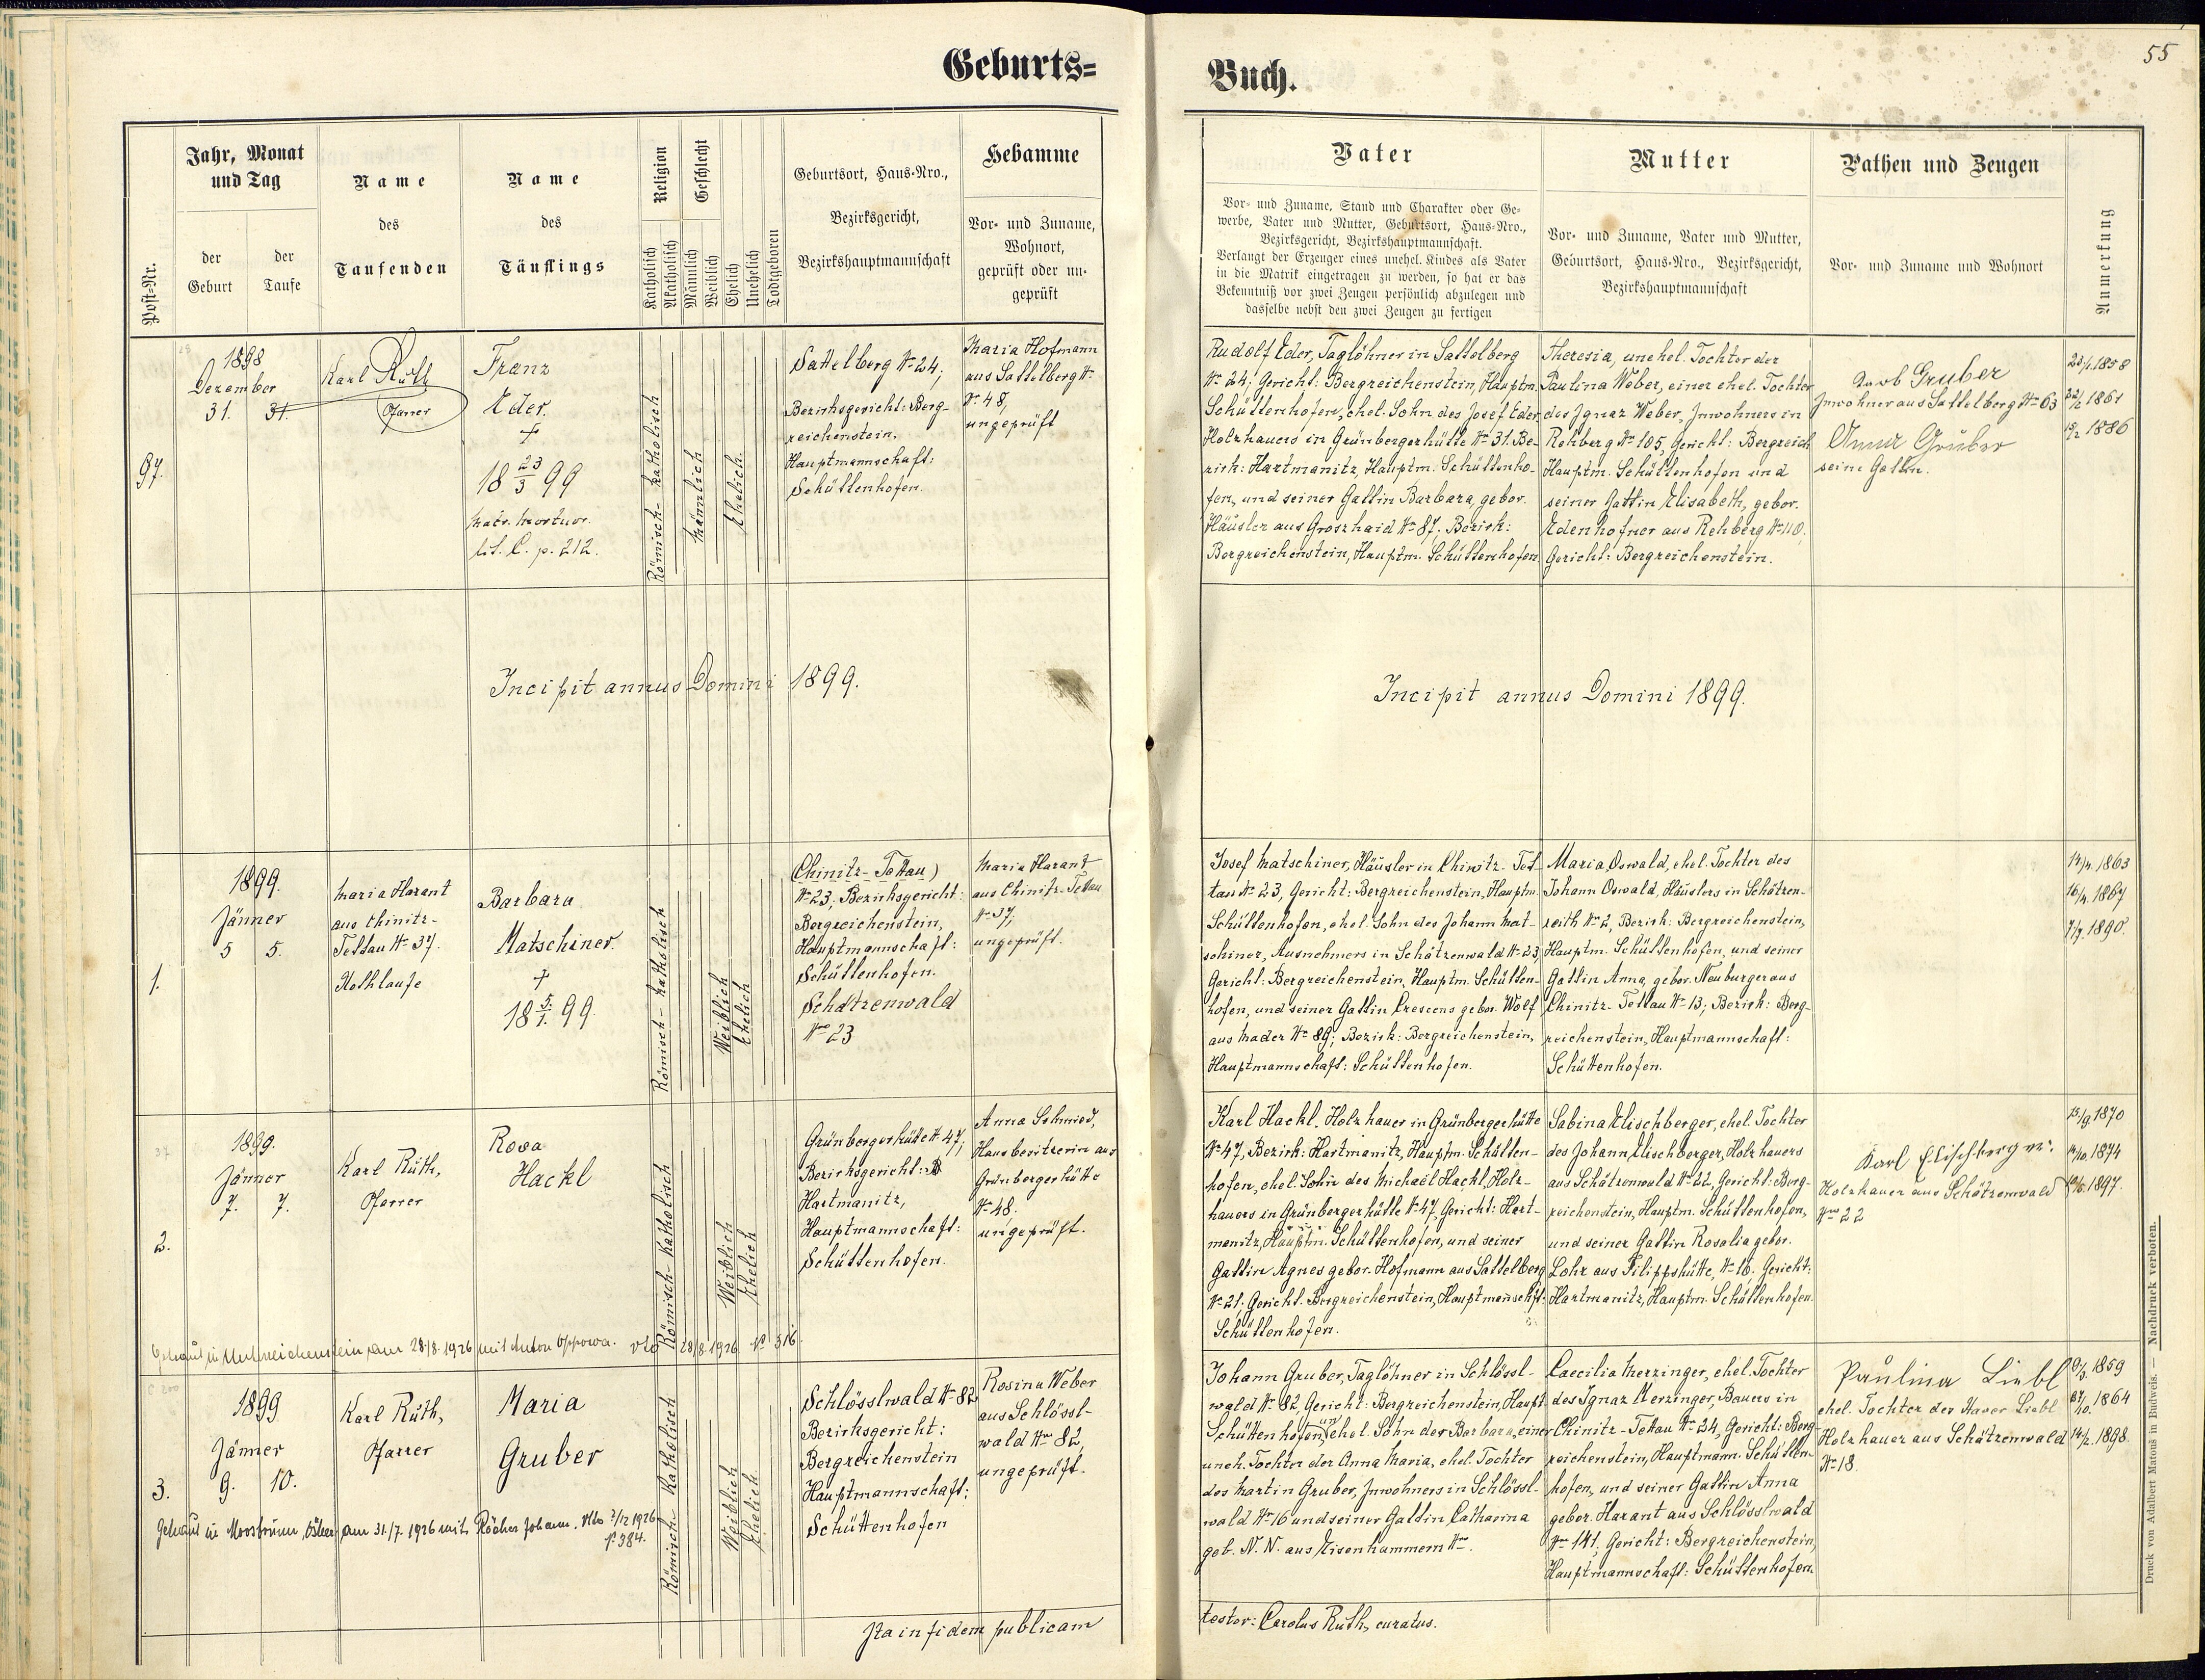 Geburts=
Buch.
55
Post-Nr.
Jahr, Monat
und Tag
der
Geburt
der
Taufe
Name
des
Taufenden
Name
des
Täuflings
Religion
Katholisch
Akatholisch
Geschlecht
Männlich
Weiblich
Ehelich
Unehelich
Todtgeboren
Geburtsort, Haus-Nro.,
Bezirksgericht,
Bezirkshauptmannschaft
Hebamme
Vor- und Zuname,
Wohnort,
geprüft oder un-
geprüft
Vater
Vor- und Zuname, Stand und Charakter oder Ge-
werbe, Vater und Mutter, Geburtsort, Haus-Nro.,
Bezirksgericht, Bezirkshauptmannschaft.
Verlangt der Erzeuger eines unehel. Kindes als Vater
in die Matrik eingetragen zu werden, so hat er das
Bekenntniß vor zwei Zeugen persönlich abzulegen und
dasselbe nebst den zwei Zeugen zu fertigen
Mutter
Vor- und Zuname, Vater und Mutter,
Geburtsort, Haus-Nro., Bezirksgericht,
Bezirkshauptmannschaft
Pathen und Zeugen
Vor- und Zuname und Wohnort
Anmerkung
97.
1898
Dezember
31. 31.
Karl Ruth
Pfarrer
Franz
Eder.
+
18 23/3 99
Matr. mortuor.
lit. C. p. 212.
Römisch-katholisch
Männlich
Ehelich.
Sattelberg N. 24;
Bezirksgericht: Berg-
reichenstein,
Hauptmannschaft:
Schüttenhofen.
Maria Hofmann
aus Sattelberg N.
N. 48,
ungeprüft
Rudolf Eder, Taglöhner in Sattelberg
N. 24; Gericht: Bergreichenstein, Hauptm.
Schüttenhofen, ehel. Sohn des Josef Eder,
Holzhauers in Grünbergerhütte N. 31. Be-
zirk: Hartmanitz, Hauptm. Schüttenho-
fen, und seiner Gattin Barbara, gebor.
Häusler aus Groszhaid N. 87. Bezirk:
Bergreichenstein, Hauptm. Schüttenhofen.
Theresia, unehel. Tochter der
Paulina Weber, einer ehel. Tochter
des Ignaz Weber, Inwohners in
Rehberg N. 105, Gericht: Bergreich
Hauptm. Schüttenhofen und
seiner Gattin Elisabeth, gebor.
Edenhofner aus Rehberg N. 110.
Gericht: Bergreichenstein.
Gruber
Inwohner aus Sattelberg N. 63
Anna Gruber
seine Gattin.
1858
1861
1886
Incipit annus Domini 1899.
Incipit annus Domini 1899.
1.
1899.
Jänner
5 5.
Maria Harant
aus Chinitz-
Tettau N. 37.
Nothtaufe
Barbara
Matschiner.
+
18 5/1. 99.
Römisch-katholisch
Weiblich
Ehelich
(Chinitz-Tettau)
N. 23, Bezirksgericht:
Bergreichenstein,
Hauptmannschaft:
Schüttenhofen.
Schätzenwald
Nro 23
Maria Harant
aus Chinitz-Tettau
N. 37,
ungeprüft.
Josef Matschiner, Häusler in Chinitz-Tet-
tau N. 23, Gericht: Bergreichenstein, Hauptm.
Schüttenhofen, ehel. Sohn des Johann Mat-
schiner, Ausnehmers in Schätzenwald N. 23,
Gericht: Bergreichenstein, Hauptm. Schütten-
hofen, und seiner Gattin Crescens gebor. Wolf
aus Mader N. 89; Bezirk: Bergreichenstein,
Hauptmannschaft: Schüttenhofen.
Maria Oswald, ehel. Tochter des
Johann Oswald, Häuslers in Schätzen-
reith N. 2, Bezirk: Bergreichenstein,
Hauptm. Schüttenhofen, und seiner
Gattin Anna, gebor. Neuburger aus
Chinitz-Tettau N. 13; Bezirk: Berg-
reichenstein, Hauptmannschaft:
Schüttenhofen.
1863
1867
1890.
2.
1899.
Jänner
7. 7.
Karl Ruth,
Pfarrer
Rosa
Hackl
Römisch-katholisch
Weiblich
Ehelich
Grünbergerhütte N. 47;
Bezirksgericht:
Hartmanitz,
Hauptmannschaft:
Schüttenhofen.
Anna Schmied,
Hausbesitzerin aus
Grünbergerhütte
N. 48.
ungeprüft.
Karl Hackl, Holzhauer in Grünbergerhütte
N. 47, Bezirk: Hartmanitz, Hauptm. Schütten-
hofen, ehel. Sohn des Michael Hackl, Holz-
hauers in Grünbergerhütte N. 47, Gericht: Hart-
manitz, Hauptm. Schüttenhofen, und seiner
Gattin Agnes gebor. Hofmann aus Sattelberg
N. 21. Gericht. Bergreichenstein, Hauptmanschft:
Schüttenhofen.
Sabina Elischberger, ehel. Tochter
des Johann Elischberger, Holzhauers
aus Schätzenwald N. 22, Gericht: Berg-
reichenstein, Hauptm. Schüttenhofen,
und seiner Gattin Rosalia gebor.
Lohr aus Filippshütte, N. 16. Gericht:
Hartmanitz, Hauptm. Schüttenhofen.
Karl Elischberger
Holzhauer aus Schätzenwald
Nro 22
1870
1874
1897.
Getraut in Unterreichenstein am 28/8. 1926 mit Anton Oppowa. vto 28/8. 1926 № 316.
3.
1899
Jänner
9. 10.
Karl Ruth,
Pfarrer
Maria
Gruber
Römisch-Katholisch
Weiblich
Ehelich
Schlösslwald N. 82
Bezirksgericht:
Bergreichenstein
Hauptmannschaft:
Schüttenhofen
Rosina Weber
aus Schlössl-
wald Nro 82,
ungeprüft.
Johann Gruber, Taglöhner in Schlössl-
wald N. 82, Gericht: Bergreichenstein, Haupt.
Schüttenhofen, unehel. Sohn der Barbara, einer
uneh. Tochter der Anna Maria, ehel. Tochter
des Martin Gruber, Inwohners in Schlössl-
wald N. 16 und seiner Gattin Catharina
geb. N. N. aus Eisenhammern Nro.
Caecilia Merzinger, ehel. Tochter
des Ignaz Merzinger, Bauers in
Chinitz-Tettau N. 24, Gericht: Berg-
reichenstein, Hauptmann. Schütten-
hofen, und seiner Gattin Anna
gebor. Harant aus Schlösslwald
Nro 141, Gericht: Bergreichenstein,
Hauptmannschaft: Schüttenhofen.
Paulina Liebl
ehel. Tochter des Xaver Liebl
Holzhauer aus Schätzenwald
Nro 18.
1859
1864
1898.
Getraut in Moosbrunn, am 31./7. 1926 mit Johann. Vto 2/12 1926
№ 384.
Ita in fidem publicam
testor: Carolus Ruth, curatus.
Druck von Adalbert Matouš in Budweis. — Nachdruck verboten.